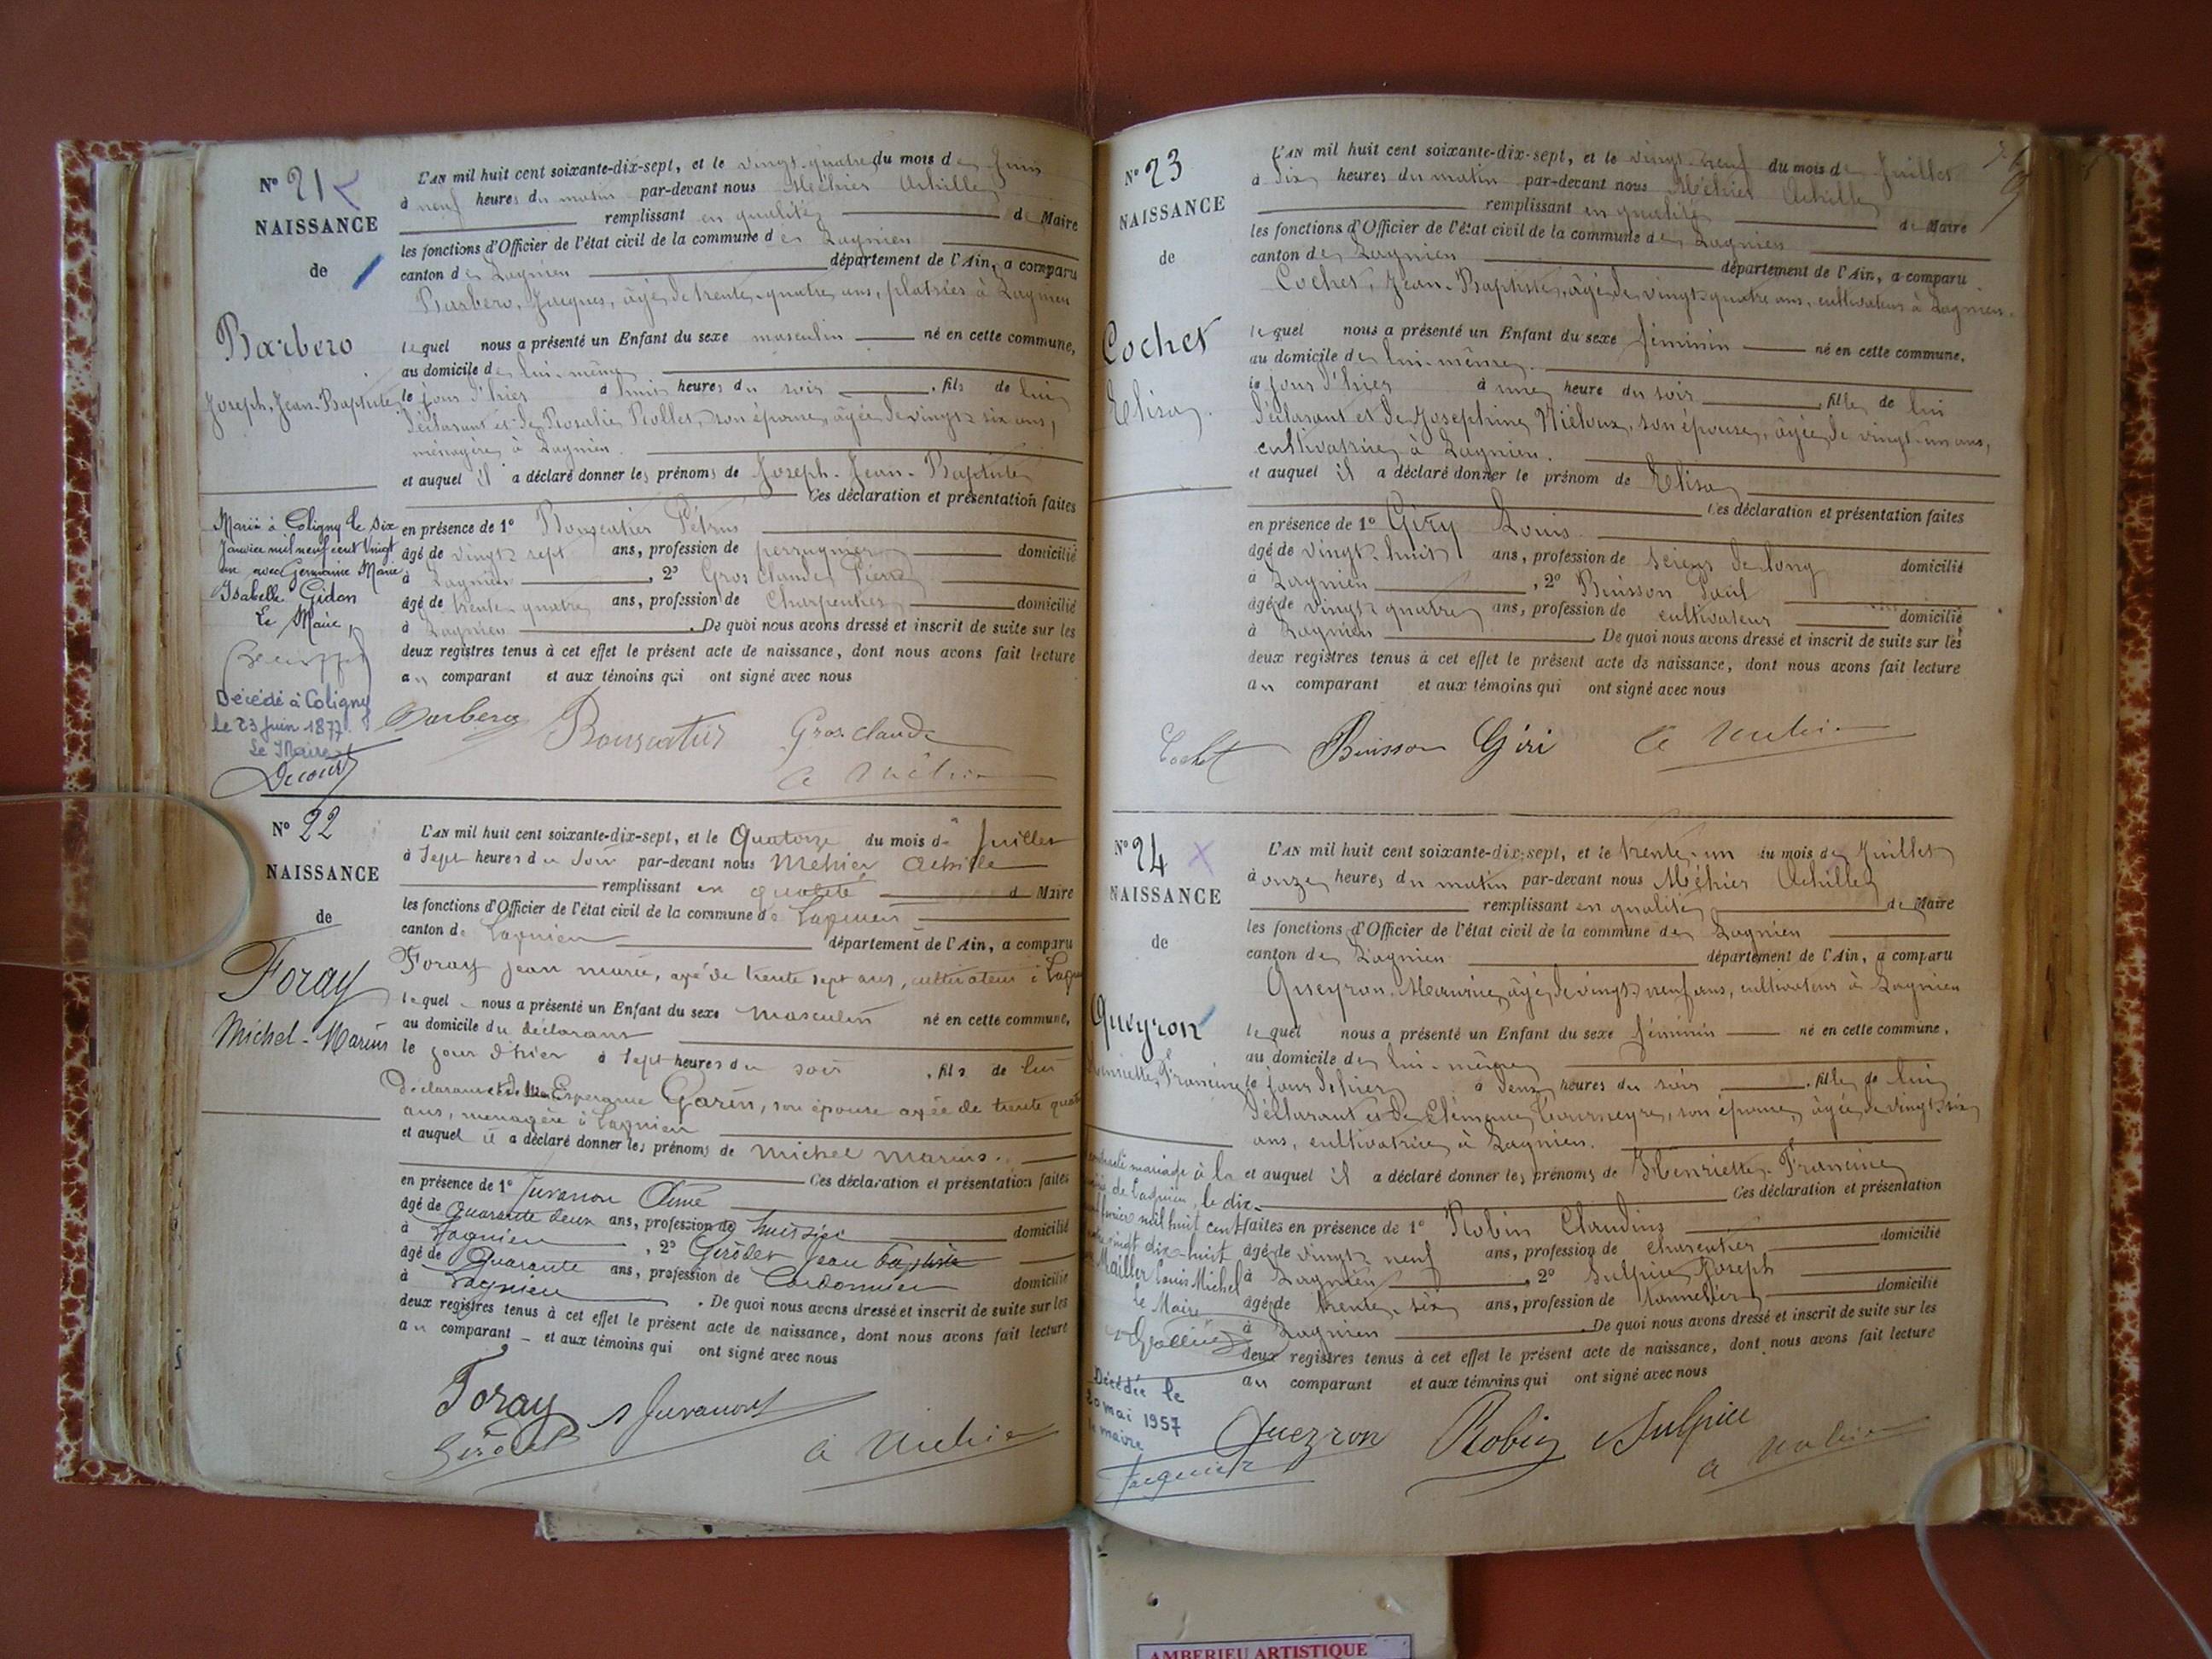 N° 21
NAISSANCE
de
Barbero
Joseph, Jean-Baptiste
Marié à Coligny le six
Janvier mil neuf cent vingt
un avec Germaine Marie
Isabelle Gidon
Le Maire,
Décédé à Coligny
le 23 juin 1877
Le Maire
Decourt
L'AN mil huit cent soixante-dix-sept, et le vingt-quatre du mois de Juin
à neuf heures du matin par-devant nous Méhier Achille
remplissant en qualité de Maire
les fonctions d'Officier de l'état civil de la commune de Lagnieu
canton de Lagnieu département de l'Ain, a comparu
Barbero, Jacques, âgé de trente-quatre ans, platrier à Lagnieu
lequel nous a présenté un Enfant du sexe masculin né en cette commune,
au domicile de lui-même
le jour d'hier à huit heures du soir, fils de lui
déclarant et de Rosalie Rollet, son épouse, âgée de vingt-six ans,
ménagère à Lagnieu.
et auquel il a déclaré donner les prénoms de Joseph-Jean-Baptiste
Ces déclaration et présentation faites
en présence de 1° Pétrus
âgé de vingt-sept ans, profession de perruquier domicilié
à Lagnieu, 2° Gros claude Pierre
âgé de trente-quatre ans, profession de Charpentier domicilié
à Lagnieu. De quoi nous avons dressé et inscrit de suite sur les
deux registres tenus à cet effet le présent acte de naissance, dont nous avons fait lecture
au comparant et aux témoins qui ont signé avec nous
Barbero Gros claude
A Méhier
N° 22
NAISSANCE
de
Foray
Michel-Marius
L'AN mil huit cent soixante-dix-sept, et le Quatorze du mois de Juillet
à Sept heures du soir par-devant nous Méhier Achille
remplissant en qualité de Maire
les fonctions d'Officier de l'état civil de la commune de Lagnieu
canton de Lagnieu département de l'Ain, a comparu
Foray jean marie, agé de trente sept ans, cultivateur à Lagnieu
lequel nous a présenté un Enfant du sexe masculin né en cette commune,
au domicile du déclarant
le jour d'hier à sept heures du soir, fils de lui
Déclarant et de Esperance Garin, son épouse agée de trente quatre
ans, menagère à Lagnieu
et auquel il a déclaré donner les prénoms de Michel Marius.
Ces déclaration et présentation faites
en présence de 1° Juvanon Aimé
âgé de Quarante deux ans, profession de huissier domicilié
à Lagnieu, 2° Girodet Jean baptiste
âgé de Quarante ans, profession de Cordonnier domicilié
à Lagnieu. De quoi nous avons dressé et inscrit de suite sur les
deux registres tenus à cet effet le présent acte de naissance, dont nous avons fait lecture
au comparant et aux témoins qui ont signé avec nous
Foray A Juvanon
Girodet A Méhier
N° 23
NAISSANCE
de
Cochet
Elisa.
L'AN mil huit cent soixante-dix-sept, et le vingt-neuf du mois de Juillet
à dix heures du matin par-devant nous Méhier Achille
remplissant en qualité de Maire
les fonctions d'Officier de l'état civil de la commune de Lagnieu
canton de Lagnieu département de l'Ain, a comparu
Cochet, Jean-Baptiste, âgé de vingt-quatre ans, cultivateur à Lagnieu.
lequel nous a présenté un Enfant du sexe féminin né en cette commune,
au domicile de lui-même.
le jour d'hier à une heure du soir, fille de lui
déclarant et de Josephine, son épouse, âgée de vingt-un ans,
cultivatrice à Lagnieu.
et auquel il a déclaré donner le prénom de Elisa
Ces déclaration et présentation faites
en présence de 1° Giry Louis.
âgé de vingt-huit ans, profession de scieur de long domicilié
à Lagnieu, 2° Buisson Paul
âgé de vingt-quatre ans, profession de cultivateur domicilié
à Lagnieu. De quoi nous avons dressé et inscrit de suite sur les
deux registres tenus à cet effet le présent acte de naissance, dont nous avons fait lecture
au comparant et aux témoins qui ont signé avec nous
Cochet Buisson Giri A Méhier
N° 24
NAISSANCE
de
Queyron
Henriette Francine
contracté mariage à la
mairie de Lagnieu, le dix-
février mil huit cent
vingt dix-huit
Mailler Louis Michel
le Maire
Décédée le
20 mai 1957
le maire
L'AN mil huit cent soixante-dix-sept, et le trente-un du mois de Juillet
à onze heures du matin par-devant nous Méhier Achille
remplissant en qualité de Maire
les fonctions d'Officier de l'état civil de la commune de Lagnieu
canton de Lagnieu département de l'Ain, a comparu
Queyron Maurice, âgé de vingt-neuf ans, cultivateur à Lagnieu
lequel nous a présenté un Enfant du sexe féminin né en cette commune,
au domicile de lui-même
le jour d'hier à deux heures du soir, fille de lui
déclarant et de Clémence Tourneyre, son épouse, âgée de vingt-six
ans, cultivatrice à Lagnieu.
et auquel il a déclaré donner les prénoms de Henriette-Francine
Ces déclaration et présentation
faites en présence de 1° Robin Claudius domicilié
âgé de vingt-neuf ans, profession de charcutier
à Lagnieu, 2° Sulpice Joseph domicilié
âgé de trente-six ans, profession de tonnelier
à Lagnieu. De quoi nous avons dressé et inscrit de suite sur les
deux registres tenus à cet effet le présent acte de naissance, dont nous avons fait lecture
au comparant et aux témoins qui ont signé avec nous
Queyron Robin Sulpice
A Méhier
AMBERIEU ARTISTIQUE